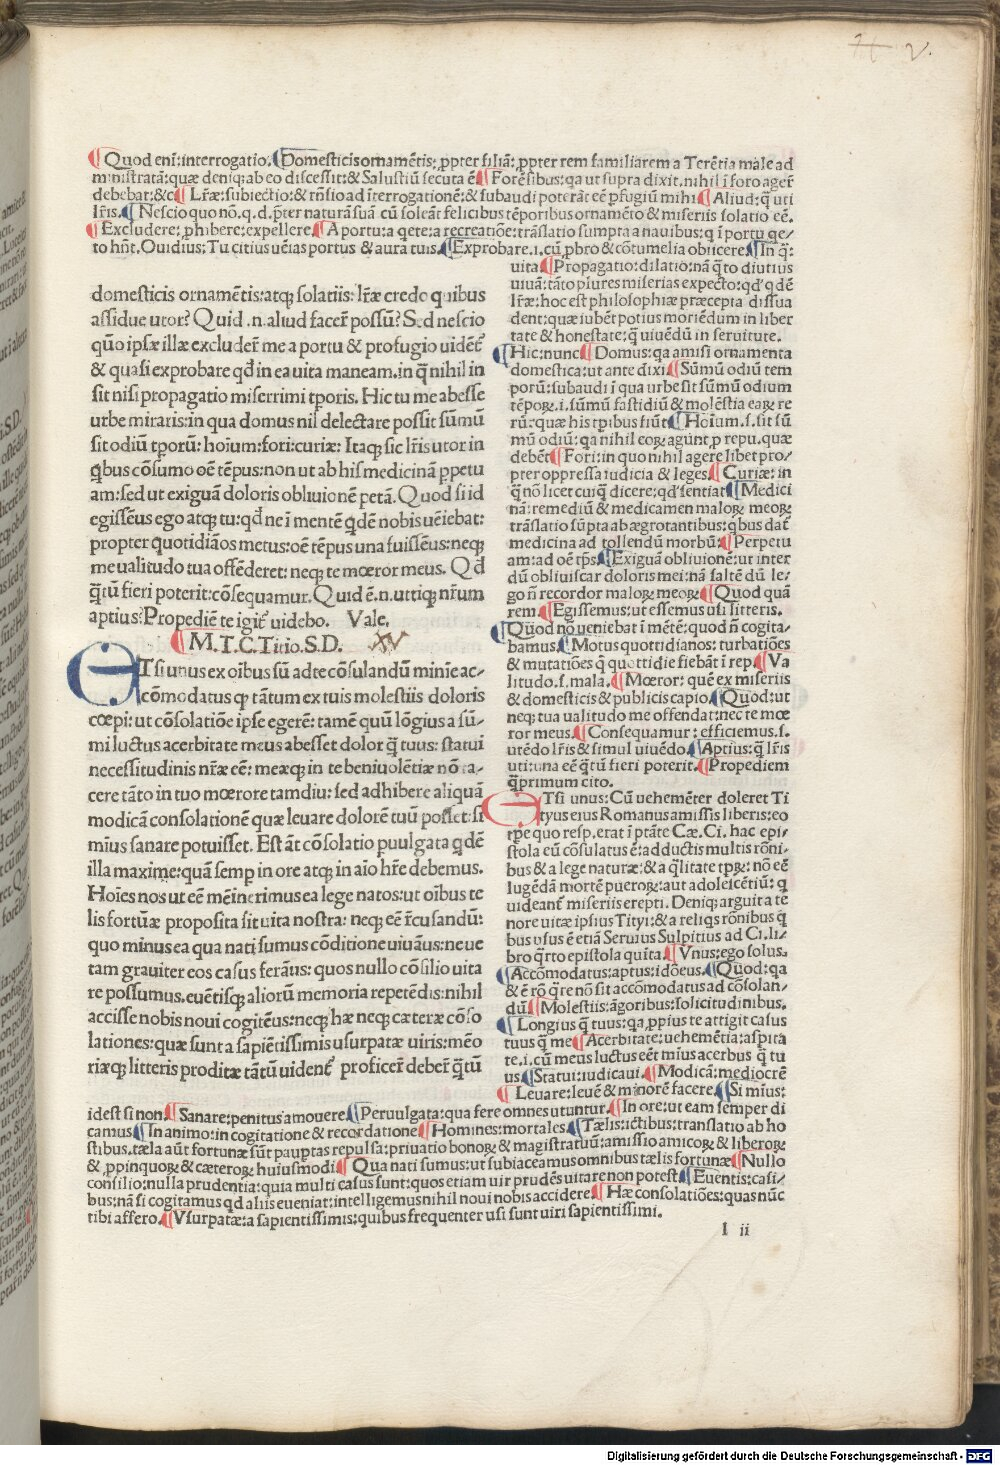 ¶Quod eni: interrogatio. ¶Domesticis ornamētis: ꝓpter filiā: ꝓpter rem familiarem a Terētia male ad
ministratā: quæ deniq; ab eo discessit: & Salustiū secuta ē ¶Forēsibus: qa ut supra dixit. nihil ī foro ager̄
debebat: &c ¶Lr̄æ: subiectio: & rn̄sio ad īterrogationē: & subaudi poterāt eē pfugiū mihi ¶Aliud: q̄ uti
lr̄is. ¶Nescio quo nō. q. d. p̄ter naturā suā cū soleāt felicibus tēporibus ornamēto & miseriis solatio eē.
¶Excludere: ꝓhibere: expellere. ¶A portu: a qete: a recreatiōe: trāslatio sumpta a nauibus: q ī portu qe-
to hn̄t. Ouidius: Tu citius uēias portus & aura tuis. ¶Exprobare. i. cū ꝓbro & cōtumelia obiicere ¶In q̄:
domesticis ornamētis: atq; solatiis: lr̄æ credo quibus
assidue utor? Quid .n. aliud facer̄ possū? Sed nescio
quo ipsæ illæ excluder̄ me a portu & profugio uidēt̄
& quasi exprobare qd̄ in ea uita maneam. in q̄ nihil in
sit nisi propagatio miserrimi tporis. Hic tu me abesse
urbe miraris: in qua domus nil delectare possit sūmū
sit odiū tporū: hoium: fori: curiæ: Itaq; sic lr̄is utor in
qbus cōsumo oē tēpus: non ut ab his medicinā ppetu
am: sed ut exiguā doloris obliuionē petā. Quod si id
egissēus ego atq; tu: qd̄ ne ī mentē qdē nobis ueīebat:
propter quotidiāos metus: oē tēpus una fuissēus: neq;
me ualitudo tua offēderet: neq; te mœror meus. Qd̄
q̄tū fieri poterit: cōsequamur. Quid ē .n. utriq; nr̄um
aptius? Propediē te igit̄ uidebo. Vale.
¶M. T. C. Titio. S. D. XV
ETsi unus ex oībus sū ad te cōsulandū minīe ac-
cōmodatus qp tātum ex tuis molestiis doloris
cœpi: ut cōsolatiōe ipse egerē: tamē quū lōgius a sū-
mi luctus acerbitate meus abesset dolor q̄ tuus: statui
necessitudinis nr̄æ eē: meæq; in te beniuolētiæ nō a-
cere tāto in tuo mœrore tamdiu: sed adhibere aliquā
modicā consolationē quæ leuare dolorē tuū posset: si
mīus sanare potuisset. Est āt cōsolatio puulgata qdē
illa maxime: quā semp in ore atq; in aīo hr̄e debemus.
Hoīes nos ut eē mēinerimus ea lege natos: ut oībus te
lis fortūæ proposita sit uita nostra: neq; eē īcusandū:
quo minus ea qua nati sumus cōditione uiuāus: neue
tam grauiter eos casus ferāus: quos nullo cōsilio uita
re possumus. euētisq; aliorū memoria repetēdis: nihil
accisse nobis noui cogitēus: neq; hæ neq; cæteræ cōso
lationes: quæ sunt a sapiētissimis usurpatæ uiris: mēo
riæq; litteris proditæ tātū uident̄ proficer̄ deber̄ q̄tū
uita ¶Propagatio: dilatio: nā q̄to diutius
uiuā: tāto plures miserias expecto: qd' qdē
lr̄æ: hoc est philosophiæ præcepta dissua
dent: quæ iubēt potius moriēdum in liber
tate & honestate: q̄ uiuēdū in seruitute.
¶Hic: nunc ¶Domus: qa amisi ornamenta
domestica: ut ante dixi ¶Sūmū odiū tem
porū: subaudi ī qua urbe sit sūmū odium
tēporꝝ. i. sūmū fastidiū & molēstia earꝝ re
rū: quæ his tpibus fiūt ¶Hoīum. s. sit sū
mū odiū: qa nihil eorꝝ agūnt p repu. quæ
debēt ¶Fori: in quo nihil agere libet pro-
pter oppressa iudicia & leges ¶Curiæ: in
q̄ nō licet cuiq̄ dicere: qd' sentiat ¶Medici
nā: remediū & medicamen malorꝝ meorꝝ
trāslatio sūpta ab ægrotantibus: qbus dat̄
medicina ad tollendū morbū: ¶Perpetu
am: ad oē tps ¶Exiguā obliuionē: ut inter
dū obliuiscar doloris mei: nā saltē dū le-
go n̄ recordor malorꝝ meorꝝ ¶Quod quā
rem. ¶Egissemus: ut essemus usi litteris.
¶Quod nō ueniebat ī mētē: quod n̄ cogita-
bamus. ¶Motus quottidianos: turbatiōes
& mutatiōes q̄ quottidie fiebāt ī rep. ¶Va
litudo. s. mala. ¶Mœror: quē ex miseriis
& domesticis & publicis capio. ¶Quod: ut
neq; tua ualitudo me offendat: nec te mœ
ror meus. ¶Consequamur: efficiemus. s.
utēdo lr̄is & simul uiuēdo. ¶Aptius: q̄ lr̄is
uti: una eē q̄tū fieri poterit. ¶Propediem
q̄primum cito.
ETsi unus: Cū uehemēter doleret Ti
tyus eius Romanus amissis liberis: eo
tp̄e quo resp. erat ī ptāte Cæ. Ci. hac epi-
stola eū cōsulatus ē: adductis multis rōni-
bus & a lege naturæ: & a qlitate tpꝝ: nō eē
lugēdā mortē puerorꝝ: aut adolescētiū: q
uideant̄ miseriis erepti. Deniq; arguit a te
nore uitæ ipsius Tityi: & a reliqs rōnibus q̄
bus usus ē etiā Seruius Sulpitius ad Ci. li-
bro q̄rto epistola quīta ¶Vnus: ego solus.
¶Accōmodatus: aptus: idōeus. ¶Quod: qa
& ē rō q̄re nō sit accōmodatus ad cōsolan-
dū ¶Molestiis: āgoribus: solicitudinibus.
¶Longius q̄ tuus: qa ꝓpius te attigit casus
tuus q̄ me ¶Acerbitate: uehemētia: aspita
te. i. cū meus luctus eēt mīus acerbus q̄ tu
us ¶Statui: iudicaui. ¶Modicā: mediocrē
¶Leuare: leuē & minorē facere ¶Si mīus:
idest si non. ¶Sanare: penitus amouere. ¶Peruulgata: qua fere omnes utuntur. ¶In ore: ut eam semper di
camus ¶In animo: in cogitatione & recordatione ¶Homines: mortales. ¶Tælis: ictibus: translatio ab ho
stibus. tæla aūt fortunæ sūt pauptas repulsa: priuatio bonorꝝ & magistratuū: amissio amicorꝝ & liberorꝝ
& ꝓpinquorꝝ & cæterorꝝ huiusmodi ¶Qua nati sumus: ut subiaceamus omnibus tælis fortunæ ¶Nullo
consilio: nulla prudentia: quia multi casus sunt: quos etiam uir prudēs uitare non potest ¶Euentis: casi-
bus: nā si cogitamus qd aliis eueniat: intelligemus nihil noui nobis accidere ¶Hæ consolatiōes: quas nūc
tibi affero. ¶Vsurpatæ: a sapientissimis: quibus frequenter usi sunt uiri sapientissimi.
I ii
Digitalisierung gefördert durch die Deutsche Forschungsgemeinschaft - DFG